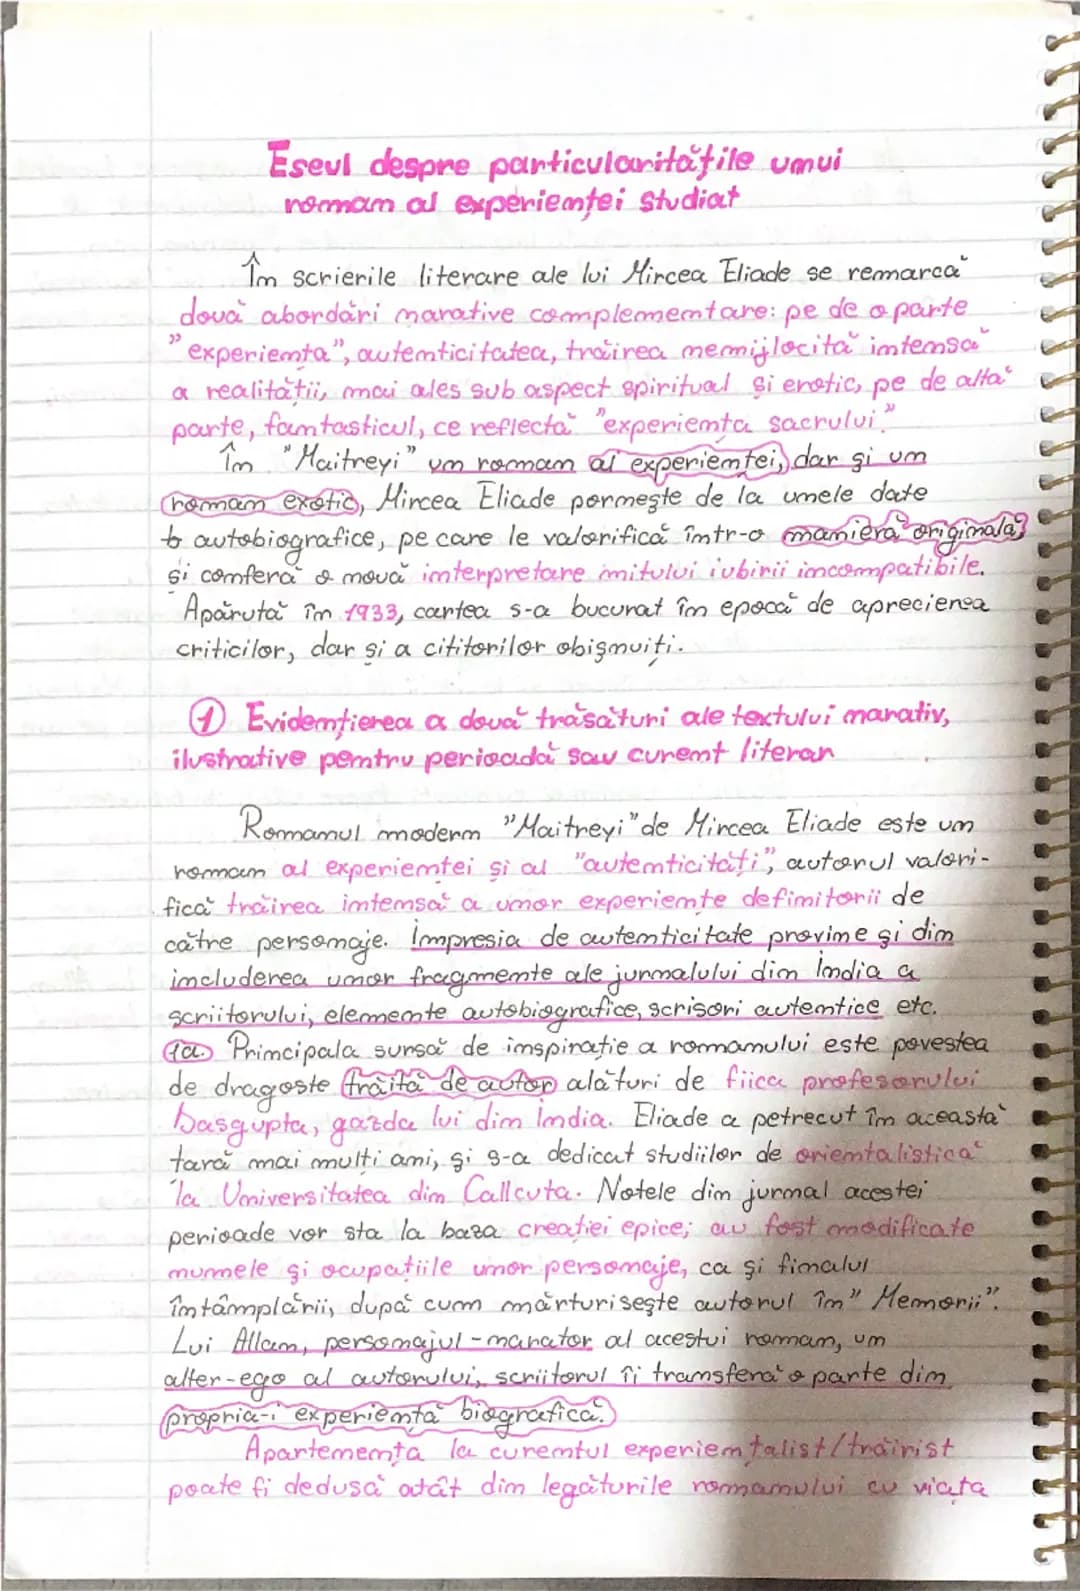 Eseul despre particularitățile unui
roman al experienței studiat
În scrierile literare ale lui Mircea Eliade se remarcă
două abordări narative complementare: pe de o parte
"experiența", autenticitatea, trăirea nemijlocită intensă
a realității, mai ales sub aspect spiritual și erotic, pe de altă
parte, fantasticul, ce reflectă "experiența sacrului."
În "Maitreyi" un roman al experienței, dar și un
roman exotic, Mircea Eliade pornește de la unele date
autobiografice, pe care le valorifică într-o manieră originală,
și conferă o nouă interpretare mitului iubirii incompatibile.
Apărută în 1933, cartea s-a bucurat în epocă de aprecierea
criticilor, dar și a cititorilor obișnuiți.
① Evidențierea a două trăsături ale textului narativ,
ilustrative pentru perioadă sau curent literar
Romanul modern "Maitreyi" de Mircea Eliade este un
roman al experienței și al "autenticități", autorul valori-
fică trăirea intensă a unor experiențe definitorii de
către personaje. Impresia de autenticitate provine și din
includerea unor fragmente ale jurnalului din India a
scriitorului, elemente autobiografice, scrisori autentice etc.
1a. Principala sursă de inspirație a romanului este povestea
de dragoste trăită de autor alături de fiica profesorului
Dasgupta, gazda lui din India. Eliade a petrecut în această
țară mai mulți ani, și s-a dedicat studiilor de orientalistică
la Universitatea din Callcuta. Notele din jurnal acestei
perioade vor sta la baza creației epice; au fost modificate
numele și ocupațiile unor personaje, ca și finalul
întâmplării, după cum mărturisește autorul în" Memorii".
Lui Allan, personajul-narator al acestui roman, un
alter-ego al autorului, scriitorul îi transferă o parte din
propria-i experiență biografică.
Apartenența la curentul experiențalist/trăirist
poate fi dedusă atât din legăturile romanului cu viața